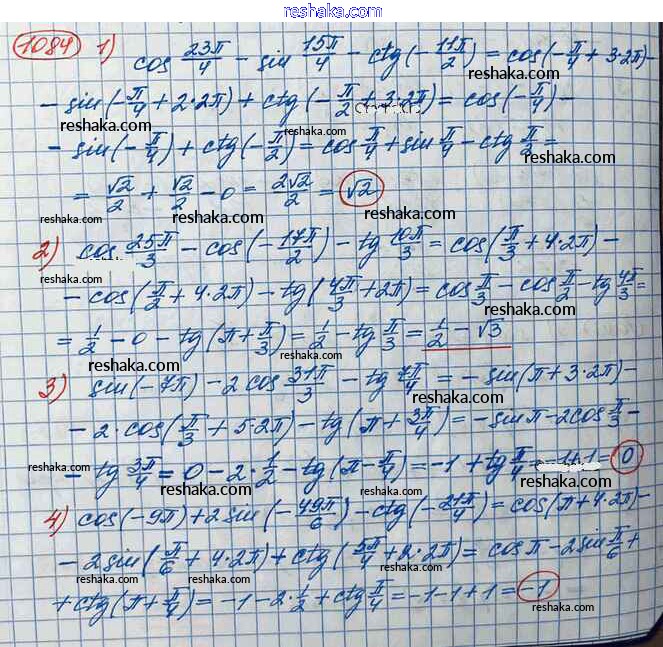 reshaka.com
1084 1) cos 23π/4 - sin 15π/4 - ctg(-11π/2) = cos(-π/4 + 3·2π) -
- sin(-π/4 + 2·2π) + ctg(-π/2 + 3·2π) = cos(-π/4) -
- sin(-π/4) + ctg(-π/2) = cos π/4 + sin π/4 - ctg π/2 =
= √2/2 + √2/2 - 0 = 2√2/2 = √2
2) cos 25π/3 - cos(-17π/2) - tg 10π/3 = cos(π/3 + 4·2π) -
- cos(π/2 + 4·2π) - tg(4π/3 + 2π) = cos π/3 - cos π/2 - tg 4π/3 =
= 1/2 - 0 - tg(π + π/3) = 1/2 - tg π/3 = 1/2 - √3
3) sin(-7π) - 2 cos 31π/3 - tg 7π/4 = - sin(π + 3·2π) -
- 2·cos(π/3 + 5·2π) - tg(π + 3π/4) = - sin π - 2cos π/3 -
- tg 3π/4 = 0 - 2·1/2 - tg(π - π/4) = -1 + tg π/4 = -1+1 = 0
4) cos(-9π) + 2 sin(-49π/6) - ctg(-21π/4) = cos(π + 4·2π) -
- 2sin(π/6 + 4·2π) + ctg(5π/4 + 2·2π) = cos π - 2sin π/6 +
+ ctg(π + π/4) = -1 - 2·1/2 + ctg π/4 = -1-1+1 = -1